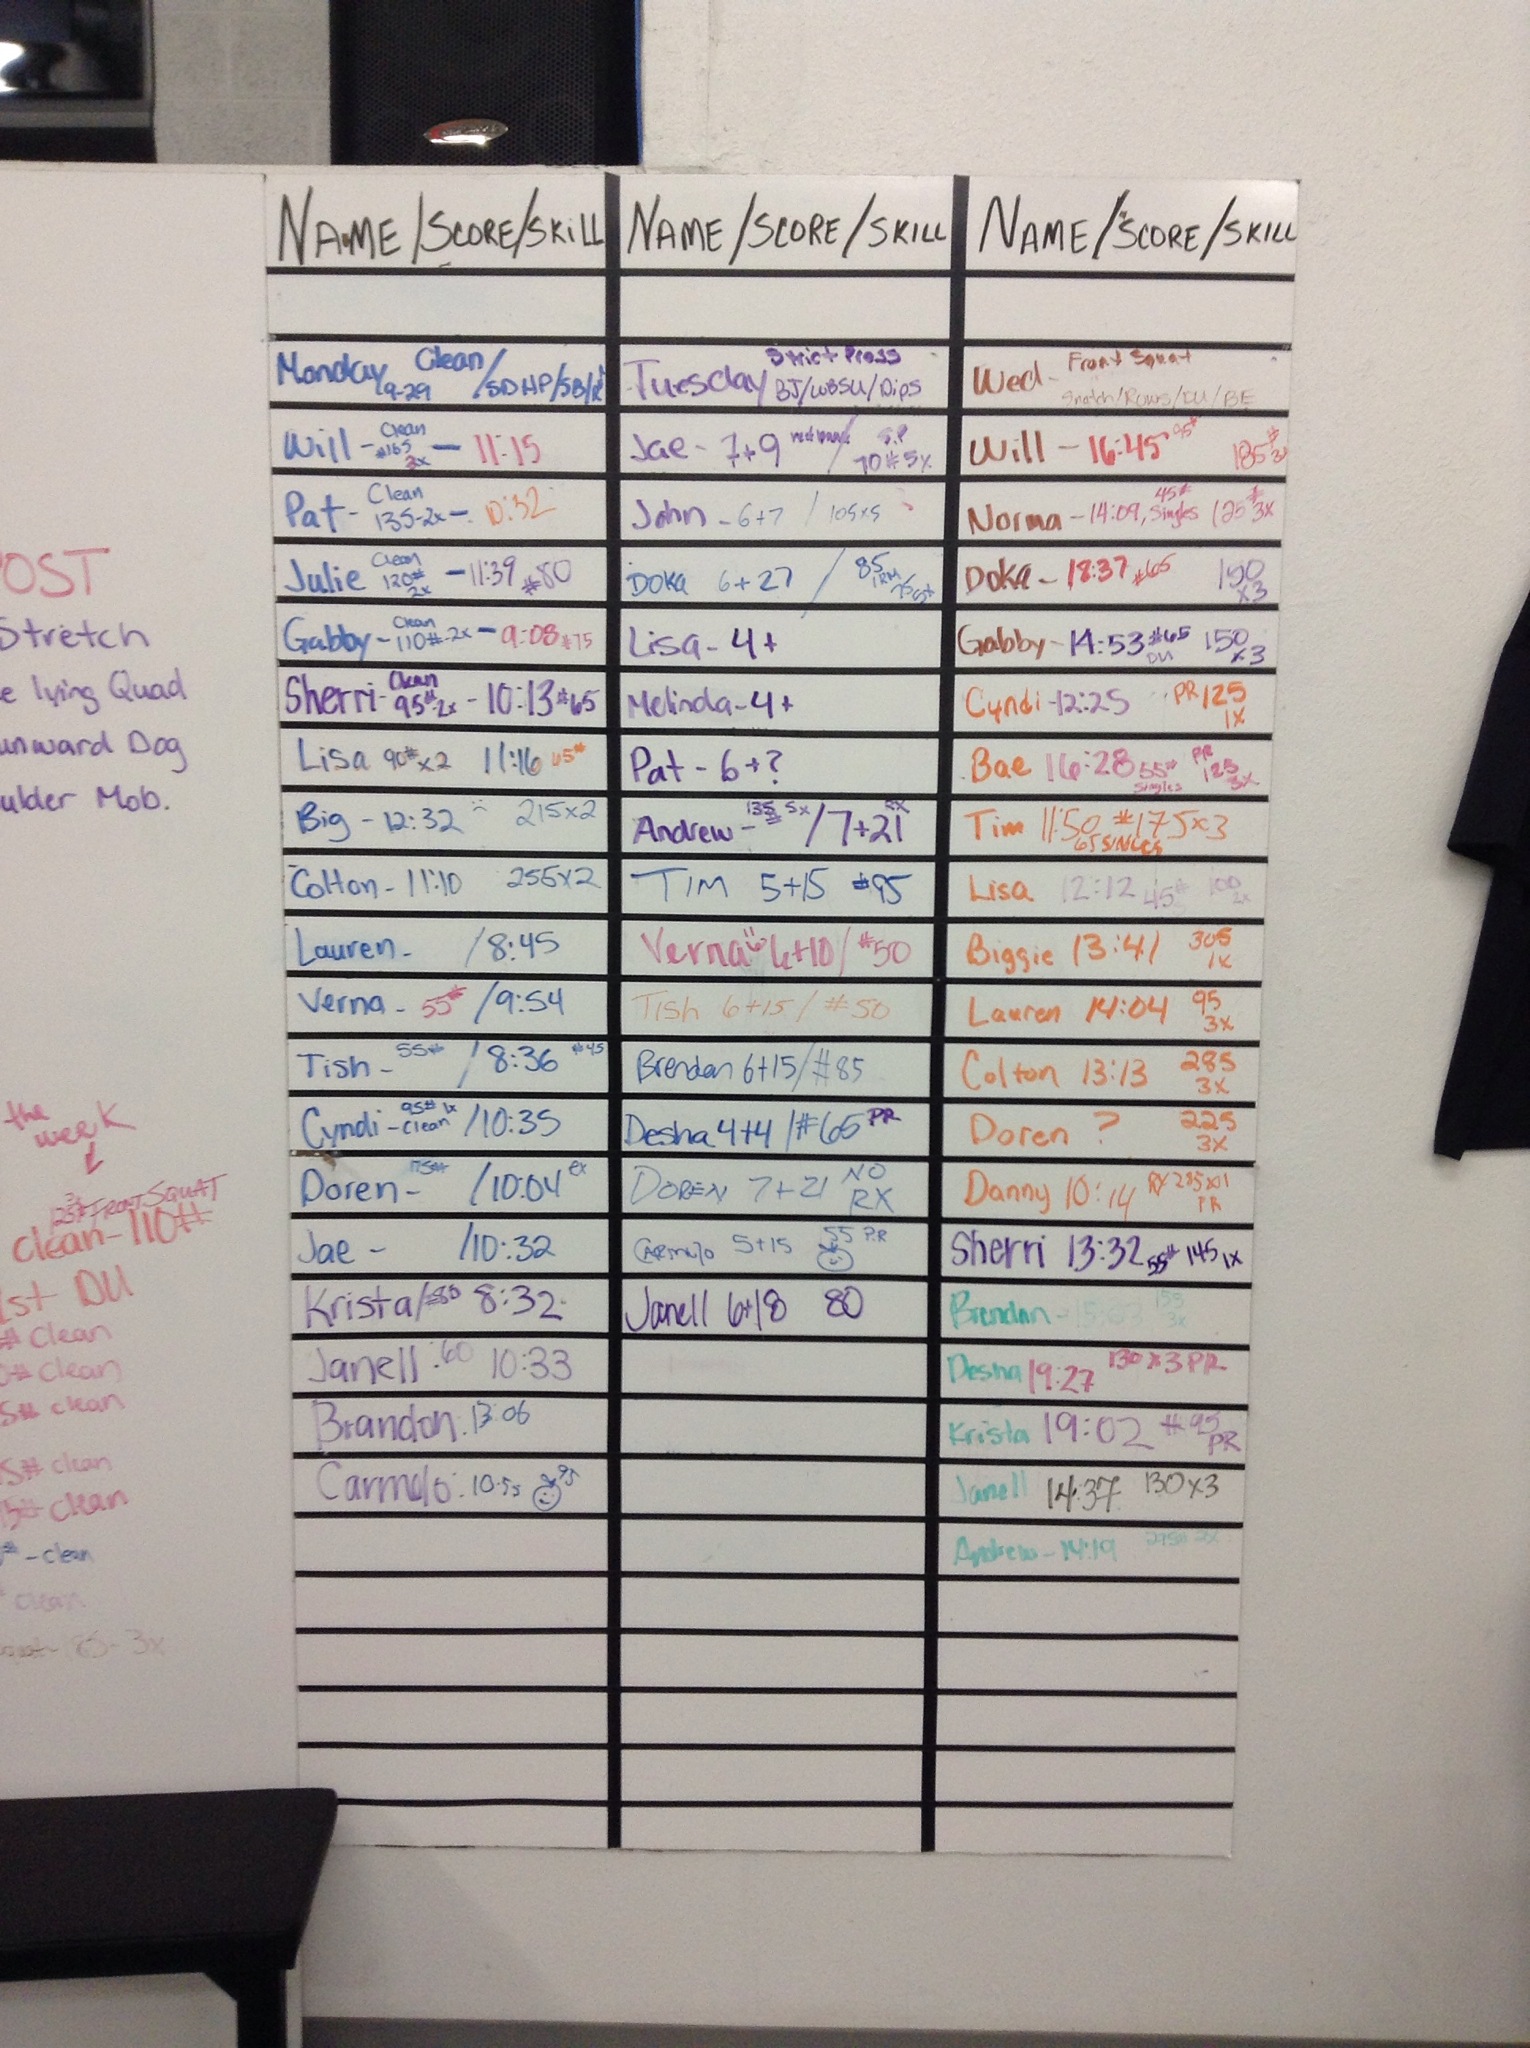 NAME/SCORE/SKILL
Monday 9-29 Clean /SDHP/SB/
Will - Clean #165 2x - 11:15
Pat - Clean 135-2x - :32
Julie Clean 120# 2x - 11:39 #80
Gabby - Clean 110#-2x - 9:08 #75
Sherri - Clean 95#-2x - 10:13 #65
Lisa 90#x2 11:16 65#
Big - 12:32 215x2
Colton - 11:10 255x2
Lauren - /8:45
Verna - 55# /9:54
Tish - 55# /8:36 #45
Cyndi - 95# 1x Clean /10:35
Doren - /10:04
Jae - /10:32
Krista/ 8:32
Janell :60 10:33
Brandon: 13:06
Carmelo: 10:55 95
NAME/SCORE/SKILL
Tuesday Strict Press BJ/WBSU/Dips
Jae - 7+9 / S.P 70#5x
John - 6+7 / 105x5
DOKA 6+27 / 85 1RM
Lisa - 4+
Melinda - 4+
Pat - 6+?
Andrew - 135# 5x / 7+21 RX
TIM 5+15 #95
Verna 6+10/ #50
Tish 6+15/ #50
Brendan 6+15/#85
Desha 4+4 /#65 PR
DOREN 7+21 NO RX
CARMELO 5+15 55 PR
Janell 6+18 80
NAME/SCORE/SKILL
Wed - Front Squat Snatch/Rows/DU/BE
Will - 16:45 95# 185# 3x
Norma - 14:09, 45# Singles 125# 3x
DOKA - 18:37 #65 150 x3
Gabby - 14:53 #65 DU 150 x3
Cyndi - 12:25 PR 125 1x
Bae 16:28 55# Singles PR 125 3x
Tim 11:50 #175x3 65 SINGLES
Lisa 12:12 45# 100 2x
Biggie 13:41 305 1x
Lauren 14:04 95 3x
Colton 13:13 285 3x
Doren ? 225 3x
Danny 10:14 RX 285x1 PR
Sherri 13:32 55# 145 1x
Brendan - 155 3x
Desha 19:27 130x3 PR
Krista 19:02 #95 PR
Janell 14:37 130x3
Andrew - 14:19
POST
Stretch
lying Quad
Dog
Mob.
the week
FRONT SQUAT
clean - 110#
1st DU
# Clean
# clean
5# clean
5# clean
5# clean
# - clean
clean
85 - 3x